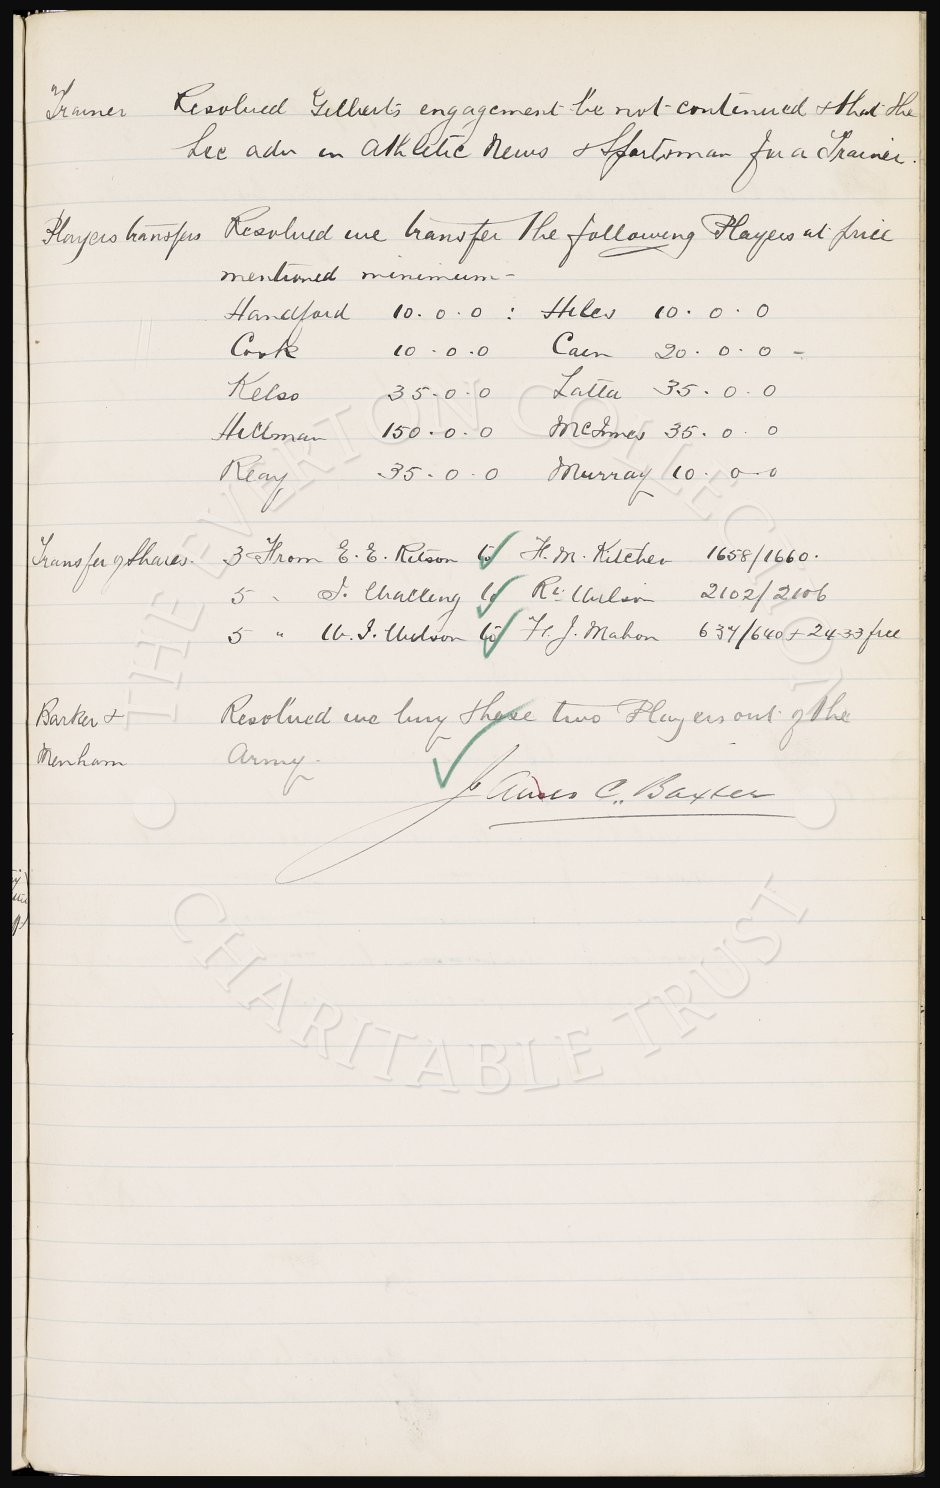 Trainer Resolved Gilberts engagement be not continued & that the
Sec adv in Athletic News & Sportsman for a Trainer.
Players transfers Resolved we transfer the following Players at price
mentioned minimum -
Handford 10. 0. 0 : Hiles 10. 0. 0
Cook 10. 0. 0 Cain 20. 0. 0 -
Kelso 35. 0. 0 Latta 35. 0. 0
Hillman 150. 0. 0 McInnes 35. 0. 0
Reay 35. 0. 0 Murray 10. 0. 0
Transfer of Shares. 3 From E. E. Ritson to H. M. Kitchen 1658/1660.
5 " J. Whalley to Rt Wilson 2102/2106
5 " W. J. Wilson to H. J. Mahon 637/640 + 2433 free
Barker & Resolved we buy these two Players out of the
Menham Army.
James C. Baxter
THE EVERTON COLLECTION
CHARITABLE TRUST